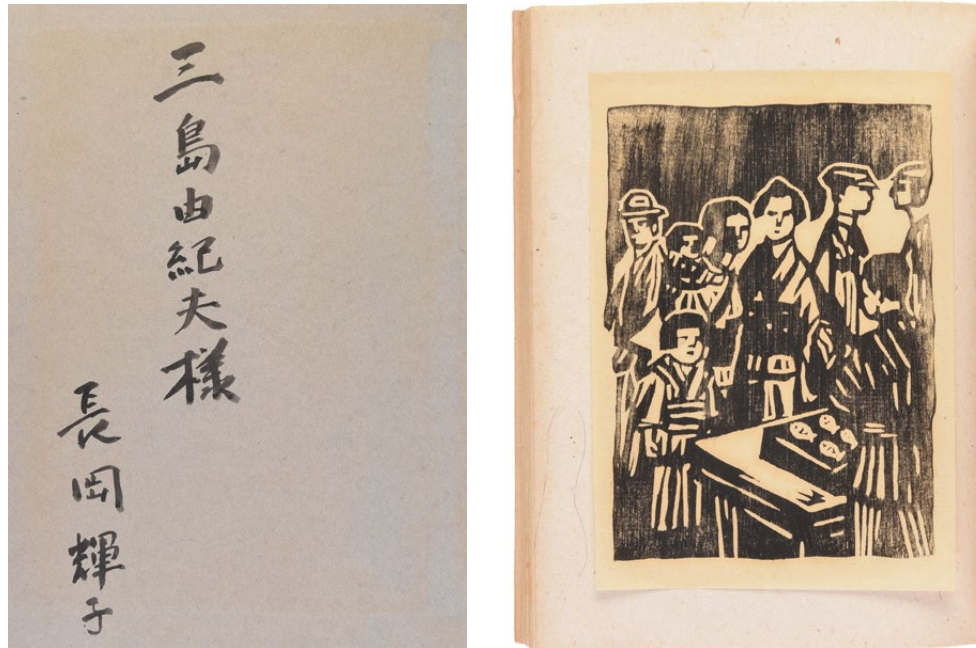 三島由紀夫様
長岡輝子